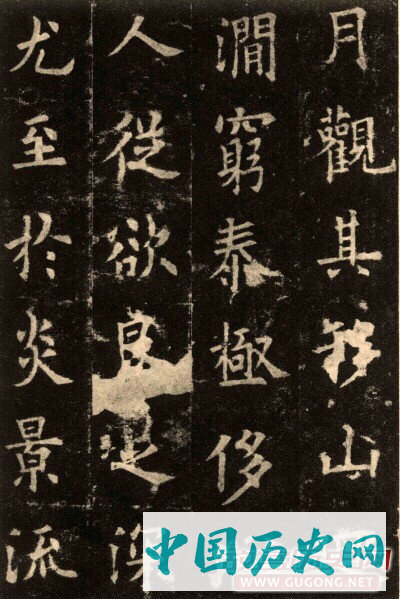 月觀其移山
澗窮泰極侈
人從欲良足深
尤至於炎景流
中国历史网
WWW.GUGONG.NET